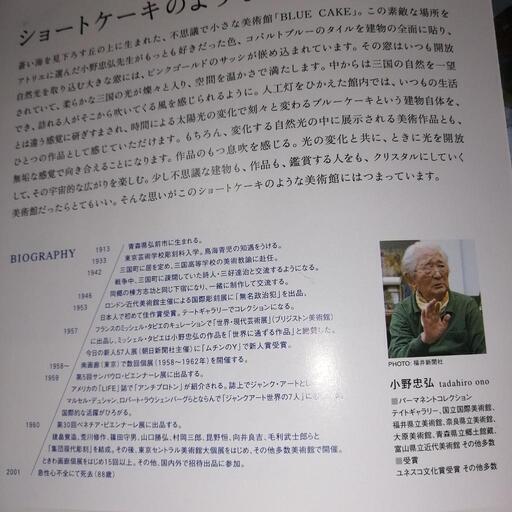 ショートケーキのような
蒼い海を見下ろす丘の上に生まれた、不思議で小さな美術館「BLUE CAKE」。この素敵な場所を
アトリエに選んだ小野忠弘先生がもっとも好きだった色、コバルトブルーのタイルを建物の全面に貼り、
自然光を取り込む大きな窓には、ピンクゴールドのサッシが嵌め込まれています。その窓はいつも開放
されていて、柔らかな三国の光が燦々と入り、空間を温かさで満たします。中からは三国の自然を一望
でき、訪れる人がそこから吹いてくる風を感じられるように。人工灯をひかえた館内では、いつもの生活
とは違う感覚に研ぎすまされ、時間による太陽光の変化で刻々と変わるブルーケーキという建物自体を、
ひとつの作品として感じていただけます。もちろん、変化する自然光の中に展示される美術作品とも、
無垢な感覚で向き合えることになります。作品のもつ息吹を感じる。光の変化と共に、ときに光を開放
して、その宇宙的な広がりを楽しむ。少し不思議な建物も、作品も、鑑賞する人をも、クリスタルにしていく
美術館だったらとてもいい。そんな思いがこのショートケーキのような美術館にはつまっています。
BIOGRAPHY
1913 青森県弘前市に生まれる。
1933 東京芸術学校彫刻科入学。鳥海青児の知遇をうける。
1942 三国町に居を定め、三国高等学校の美術教諭に赴任。
戦争中、三国町に疎開していた詩人・三好達治と交流するようになる。
1946 同郷の棟方志功と同じ下宿になり、一緒に制作して交流する。
1953 ロンドン近代美術館主催による国際彫刻展に「無名政治犯」を出品。
日本人で初めて佳作賞受賞。テートギャラリーでコレクションになる。
1957 フランスのミッシェル・タピエのキュレーションで「世界・現代芸術展」(ブリジストン美術館)
に出品。ミッシェル・タピエは小野忠弘の作品を「世界に通ずる作品」と絶賛した。
今日の新人57人展(朝日新聞社主催)に「ムチンのY」で新人賞受賞。
1958〜 南画廊(東京)で数回個展(1958〜1962年)を開催する。
1959 第5回サンパウロ・ビエンナーレ展に出品。
アメリカの「LIFE」誌で「アンチプロトン」が紹介される。誌上でジャンク・アートとし
マルセル・デュシャン、ロバート・ラウシェンバーグらとならんで「ジャンクアート世界の7人」に
国際的な活躍がひろがる。
1960 第30回ベネチア・ビエンナーレ展に出品。
建畠覚造、荒川修作、篠田守男、山口勝弘、村岡三郎、昆野恒、向井良吉、毛利武士郎らと
「集団現代彫刻」を結成。その後、東京セントラル美術館大個展をはじめ、その他多数美術館で開催。
ときわ画廊個展をはじめ15回以上。その他、国内外で招待出品に参加。
2001 急性心不全にて死去(88歳)
PHOTO: 福井新聞社
小野忠弘 tadahiro ono
■パーマネントコレクション
テイトギャラリー、国立国際美術館、
福井県立美術館、奈良県立美術館、
大原美術館、青森県立郷土館蔵、
富山県立近代美術館 その他多数
■受賞
ユネスコ文化賞受賞 その他多数